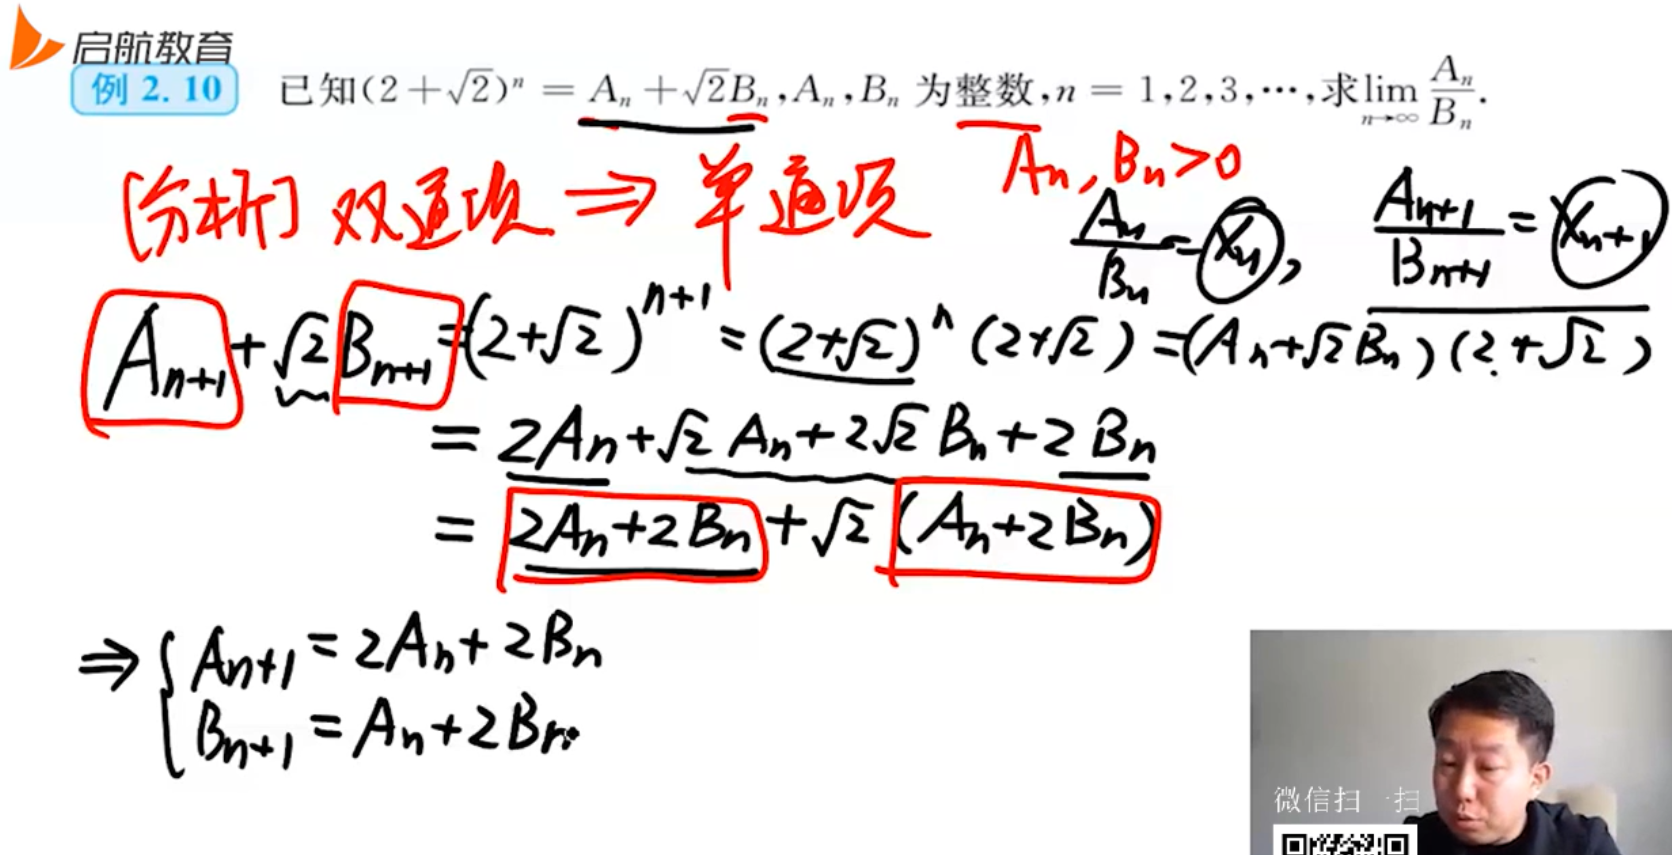 启航教育
例 2.10 已知(2+√2)ⁿ = Aₙ+√2Bₙ,Aₙ,Bₙ 为整数,n = 1,2,3,⋯,求lim n→∞ Aₙ/Bₙ.
[分析] 双通项 ⇒ 单通项 Aₙ, Bₙ>0
Aₙ/Bₙ = xₙ, Aₙ₊₁/Bₙ₊₁ = xₙ₊₁
Aₙ₊₁+√2Bₙ₊₁=(2+√2)ⁿ⁺¹=(2+√2)ⁿ(2+√2)=(Aₙ+√2Bₙ)(2+√2)
= 2Aₙ+√2Aₙ+2√2Bₙ+2Bₙ
= 2Aₙ+2Bₙ+√2(Aₙ+2Bₙ)
⇒ { Aₙ₊₁ = 2Aₙ+2Bₙ
Bₙ₊₁ = Aₙ+2Bₙ
微信扫一扫